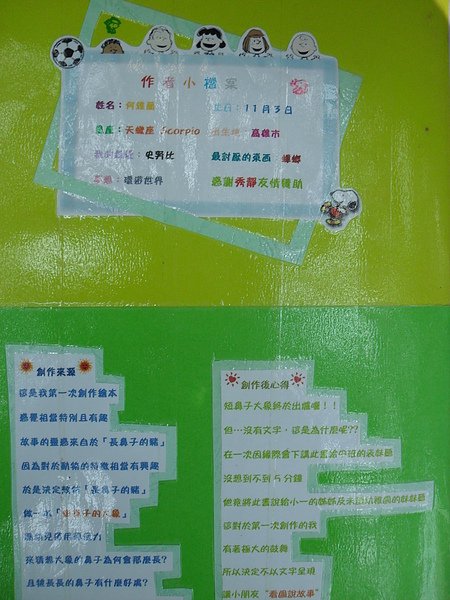 作者小檔案
姓名：何
生日：11月3日
星座：天蠍座 Scorpio
出生地：高雄市
史努比
最討厭的東西：蟑螂
環遊世界
感謝秀靜友情贊助
創作來源
這是我第一次創作繪本
感覺相當特別且有趣
故事的靈感來自於「長鼻子的豬」
因為對於動物的特徵相當有興趣
於是決定放棄「長鼻子的豬」
做一本「短鼻子的大象」
來猜想大象的鼻子為何會那麼長?
且被長長的鼻子有什麼好處?
創作後心得
短鼻子大象終於出爐囉！！
但…沒有文字，這是為什麼呢??
在一次因緣際會下講此書給中班的表妹聽
沒想到不到5分鐘
他竟將此書說給小一的姊姊及未上幼稚園的妹妹聽
這對於第一次創作的我
有著極大的鼓舞
所以決定不以文字呈現
讓小朋友"看圖說故事"